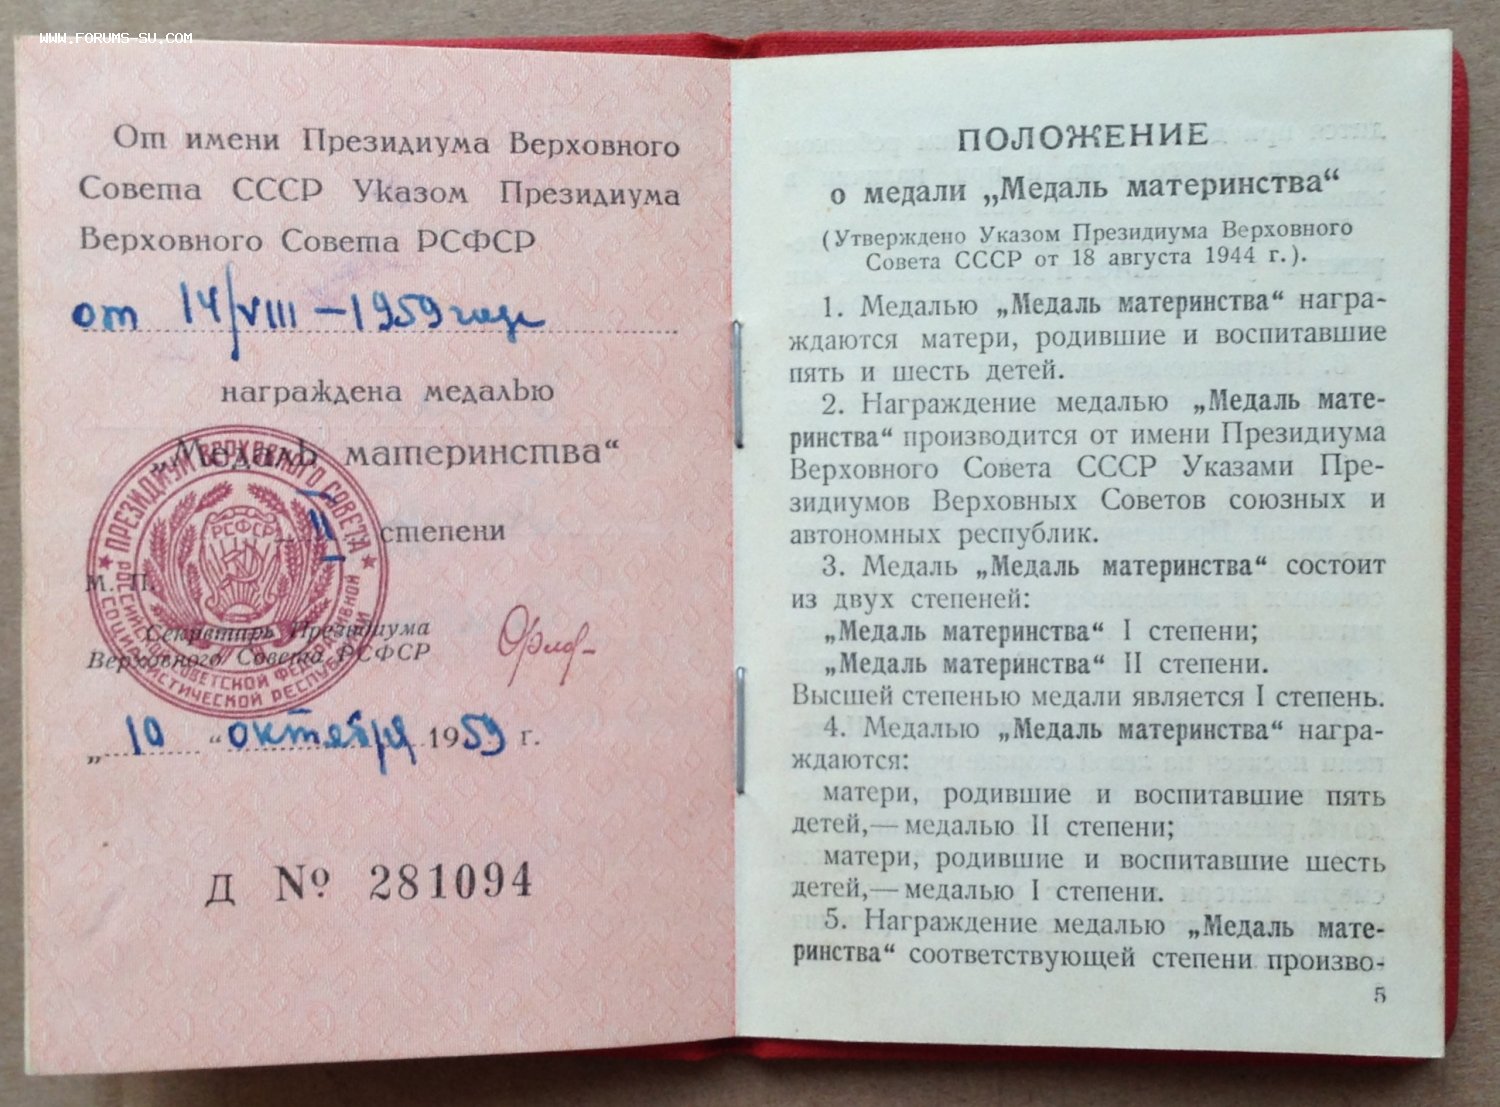 WWW.FORUMS-SU.COM
От имени Президиума Верховного
Совета СССР Указом Президиума
Верховного Совета РСФСР
от 14/VIII – 1959 года
награждена медалью
„Медаль материнства“
II степени
М. П.
ПРЕЗИДИУМ ВЕРХОВНОГО СОВЕТА
РОССИЙСКОЙ СОВЕТСКОЙ ФЕДЕРАТИВНОЙ
СОЦИАЛИСТИЧЕСКОЙ РЕСПУБЛИКИ
РСФСР
Секретарь Президиума
Верховного Совета РСФСР
„ 10 “ октября 1959 г.
Д № 281094
ПОЛОЖЕНИЕ
о медали „Медаль материнства“
(Утверждено Указом Президиума Верховного
Совета СССР от 18 августа 1944 г.).
1. Медалью „Медаль материнства“ награ-
ждаются матери, родившие и воспитавшие
пять и шесть детей.
2. Награждение медалью „Медаль мате-
ринства“ производится от имени Президиума
Верховного Совета СССР Указами Пре-
зидиумов Верховных Советов союзных и
автономных республик.
3. Медаль „Медаль материнства“ состоит
из двух степеней:
„Медаль материнства“ I степени;
„Медаль материнства“ II степени.
Высшей степенью медали является I степень.
4. Медалью „Медаль материнства“ награ-
ждаются:
матери, родившие и воспитавшие пять
детей,— медалью II степени;
матери, родившие и воспитавшие шесть
детей,— медалью I степени.
5. Награждение медалью „Медаль мате-
ринства“ соответствующей степени произво-
5